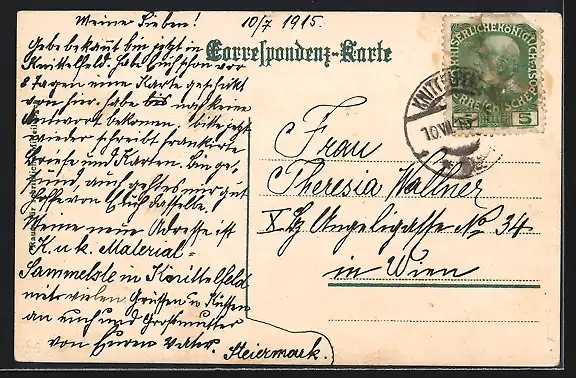 Meine Lieben! 10/7 1915.
Gebe bekannt bin jetzt in
Knittelfeld. Habe Euch schon vor
8 Tagen eine Karte geschickt
von hier. habe bis noch keine
Antwort bekomen. bitte jetzt
wieder schreibt frankierte
Briefe und Karten. Bin ge-
sund, auch geht es mir gut
hoffe von Euch dasselbe.
Meine neue Adresse ist
K. u. k. Material-
Sammelstle in Knittelfeld
mit vielen Grüssen u Küssen
an euch und Grossmutter
von Euren Vater. Steiermark.
Correspondenz-Karte
KAISERLICHE KÖNIGLICHE
ÖSTERREICHISCHE
5 5
KNITTELFELD
10 VII 15
Frau
Theresia Wallner
X. Bz Angeligasse No 34
in Wien